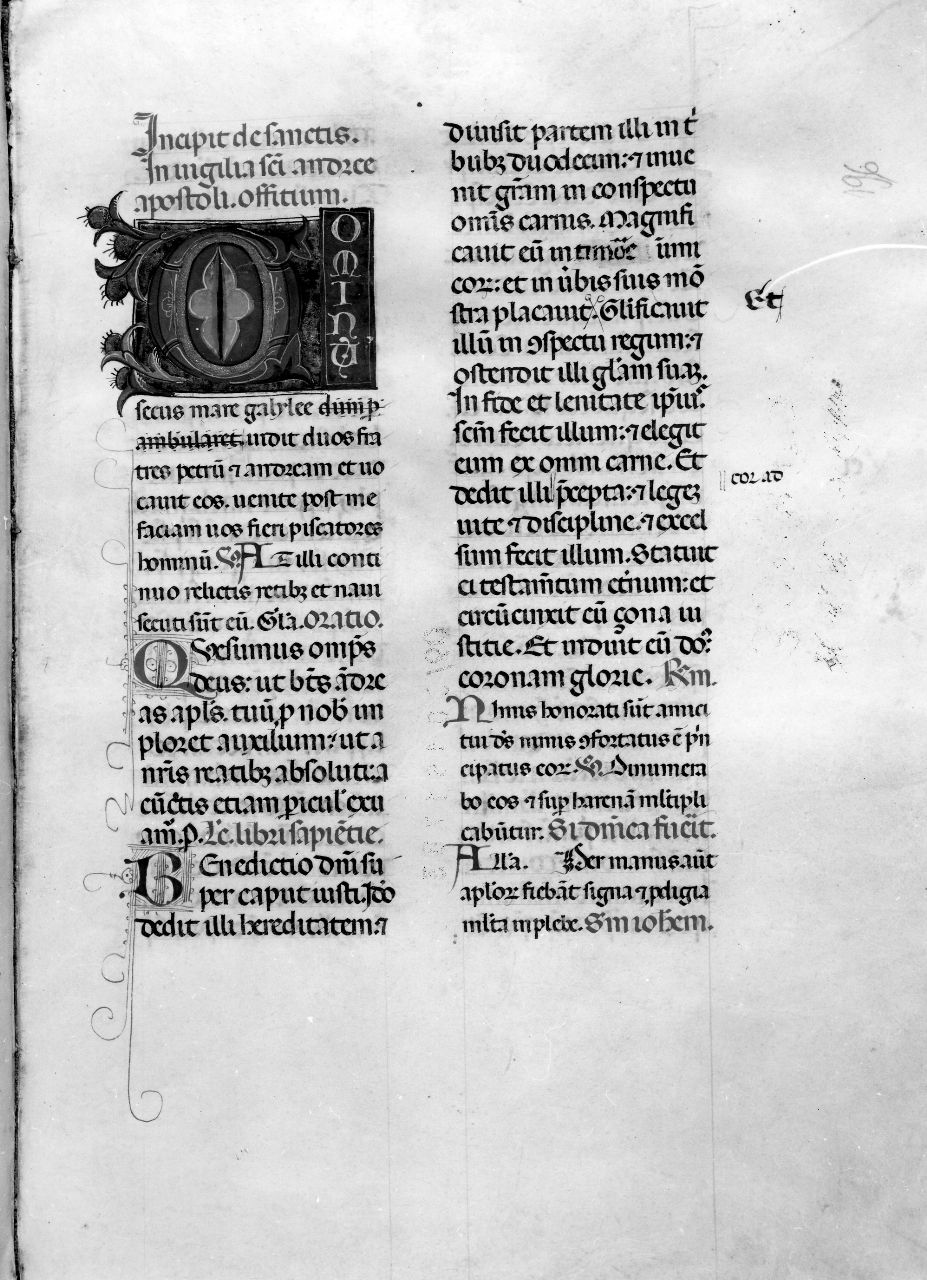 Incipit de sanctis.
In uigilia sci andree
apostoli. offitium.
DOMINŪ
secus mare galylee dum p̱
ambularet. uidit duos fra
tres petrū ⁊ andream et uo
cauit eos. uenite post me
faciam uos fieri piscatores
hominū. V. At illi conti
nuo relictis retibꝫ et naui
secuti sūt eū. Gl̄a. Oratio.
Quesumus omp̄s
deus: ut bt̄s ādre
as apl̄s. tuū ꝑ nob̄ im
ploret auxilium: ut a
nr̄is reatibꝫ absoluti: a
cūctis etiam ꝑicul̄ exu
am̄. P. Lc̄. libri sapiētie.
Benedictio dn̄i su
per caput iusti. Ideo
dedit illi hereditatem: ⁊
diuisit partem illi in t̄
bubꝫ duodecim: ⁊ inue
nit gr̄am in conspectu
omīs carnis. Magnifi
cauit eū in timore inimi
coꝝ: et in ūbis suis mō
stra placauit. Gl̄ificauit
illū in ꝯspectu regum: ⁊
ostendit illi gl̄am suaꝫ.
In fide et lenitate ip̄ius.
sc̄m fecit illum: ⁊ elegit
eum ex omni carne. Et
dedit illi p̄cepta: ⁊ legeꝫ
uite ⁊ discipline. ⁊ excel
sum fecit illum. Statuit
ei testam̄tum et̄num: et
circūcinxit eū çona iu
stitie. Et induit eū dōs
coronam glorie. R̄m.
Nimis honorati sūt amici
tui ds̄ nimis ꝯfortatus ē p̄n
cipatus eoꝝ. V. Dinumera
bo eos ⁊ suꝑ harenā ml̄tipli
cabūtur. Si dn̄ica fūit.
All̄a. V. Per manus aūt
apl̄oꝝ fiebāt signa ⁊ ꝓdigia
ml̄ta in plebe. Sm̄ ioh̄em.
Et
cor ad
96